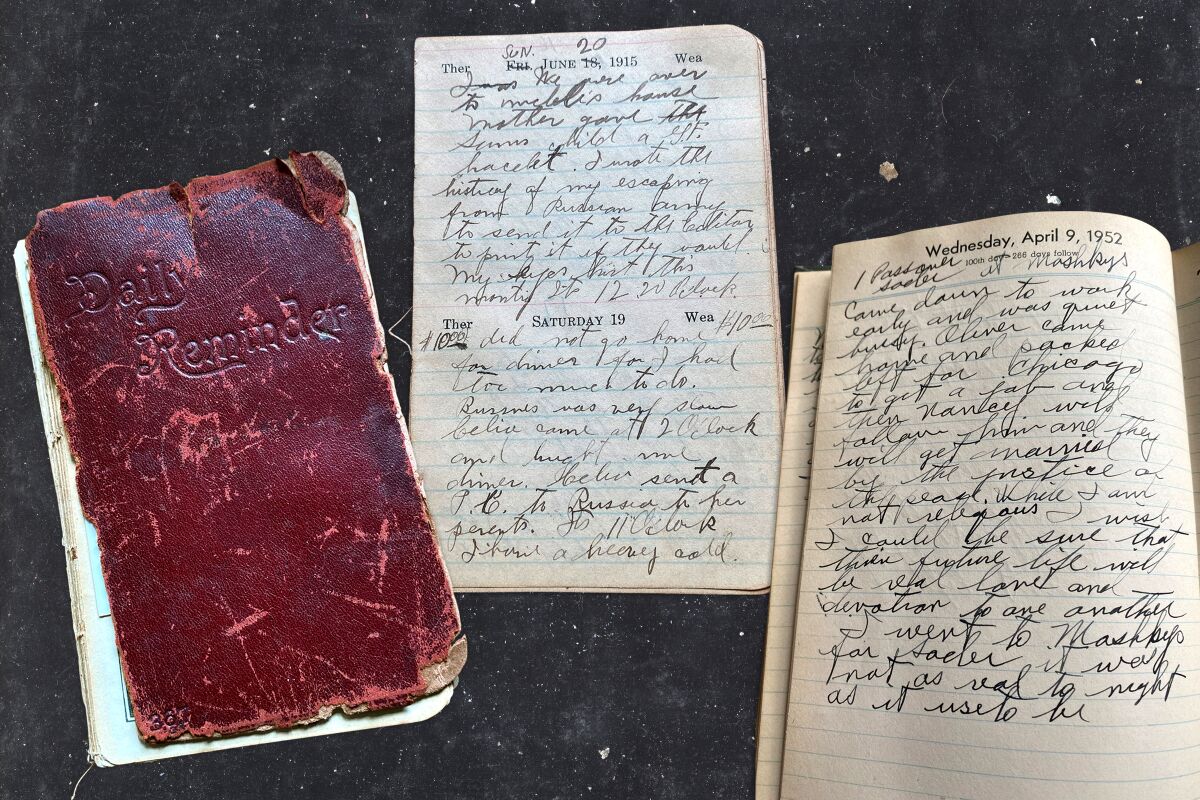 Daily
Reminder
389
SUN. 20
Ther FRI. JUNE 18, 1915 Wea
I was We were over
to house
Mother gave the
child a Gt.
braclet. I wrote the
history of my escaping
from Russian army
to send it to the Editor
to print it if they would
My eyes hurt this
Its 12 20 Oclock.
Ther SATURDAY 19 Wea
$10.00 did not go home $10.00
for dinner for I had
too much to do.
Bussnes was very slow
Celia came at 2 O'Clock
and me
dinner. Celia sent a
P.C. to Russia to her
perents. Its 11 O'Clock
I have a heavey cold.
Wednesday, April 9, 1952
100th day—266 days follow
1 Passover at Mashkys
sader
Came down to work
early and was quiet
busy. Oliver came
home and packed
off for Chicago
to get a job and
then Nancy will
follow him and they
will get married
by the justice of
the pead. While I am
not religious I wish
I could be sure that
their future life will
be real love and
devotion to one another
I went to Mashkys
for sader it was
not as real to night
as it useto be